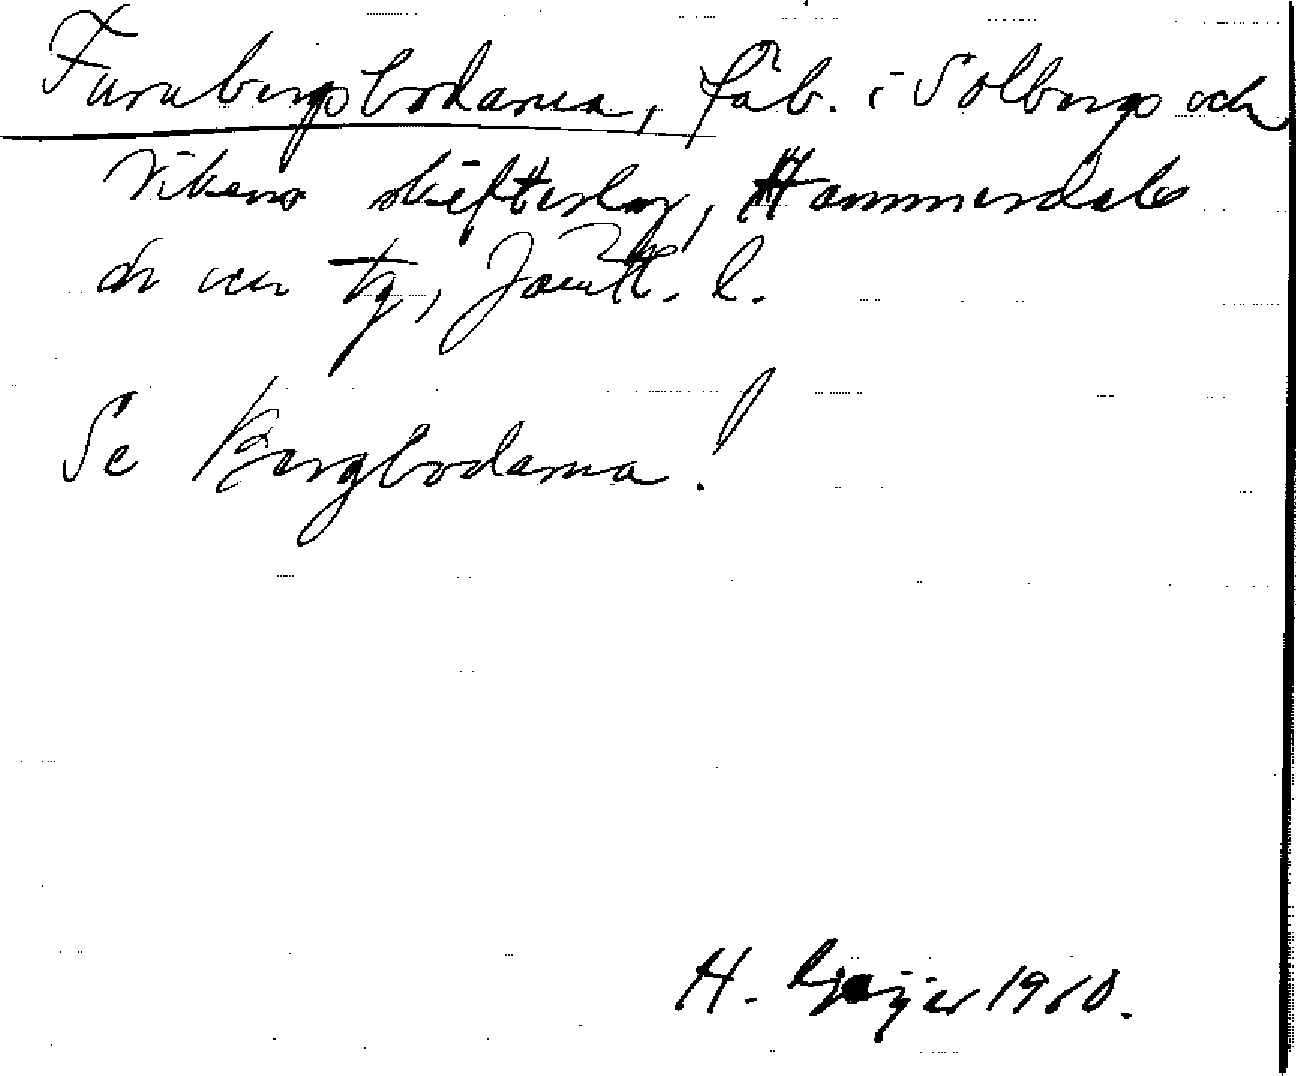 Furubergsbodarna, fäb. i Solbergs och
Vikens skifteslag, Hammerdals
sn och tg, Jämtl. l.
Se Bergbodarna!
H. Geijer 1910.